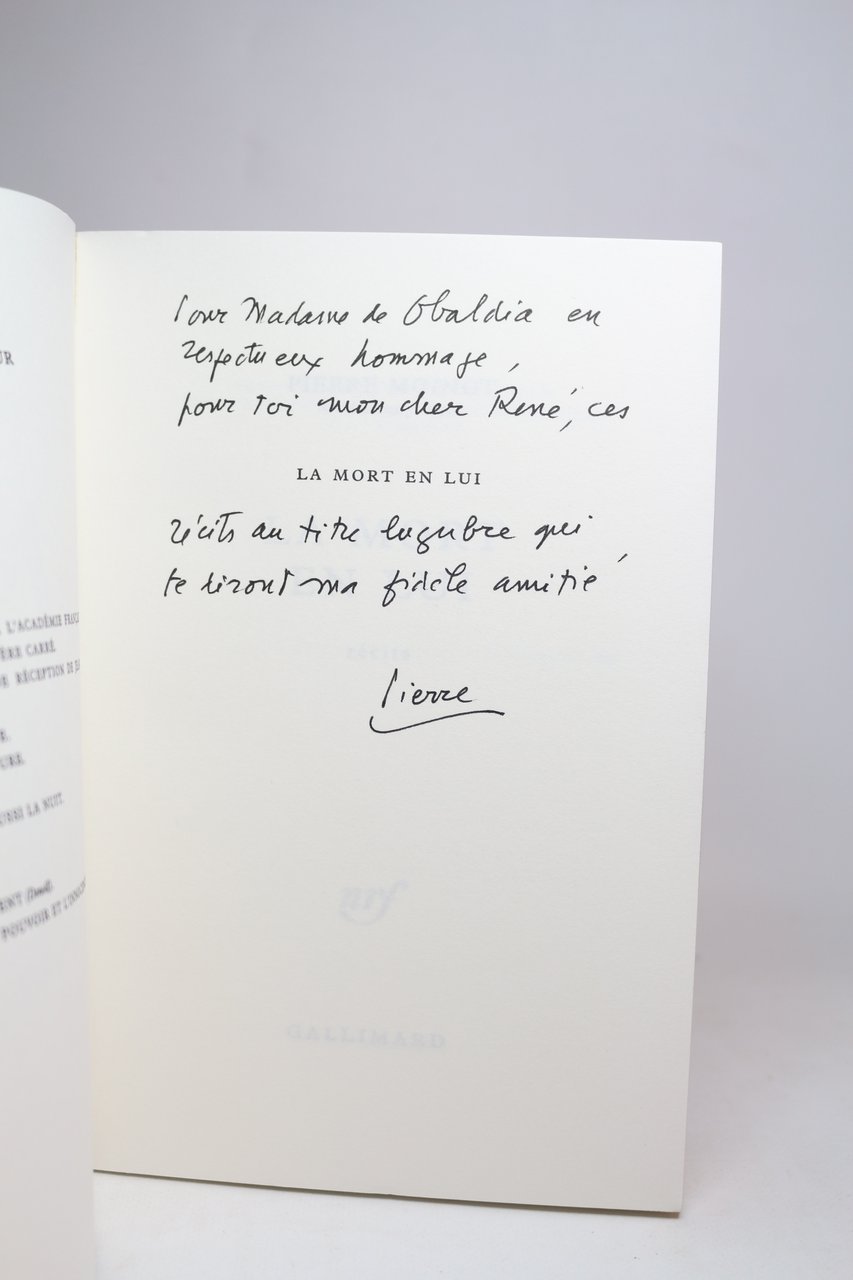 UR
L'ACADÉMIE FRANÇ
ÈRE CARRÉ.
RÉCEPTION DE
URE.
LA NUIT.
POUVOIR ET
Pour Madame de Obaldia en
respectueux hommage,
pour toi mon cher René, ces
LA MORT EN LUI
récits au titre lugubre qui
te diront ma fidèle amitié
Pierre
RÉCITS
nrf
GALLIMARD